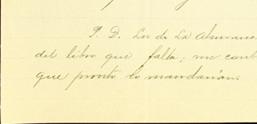 P. D. Los de La Almunia
del libro que falta, me cont
que pronto lo mandarían.